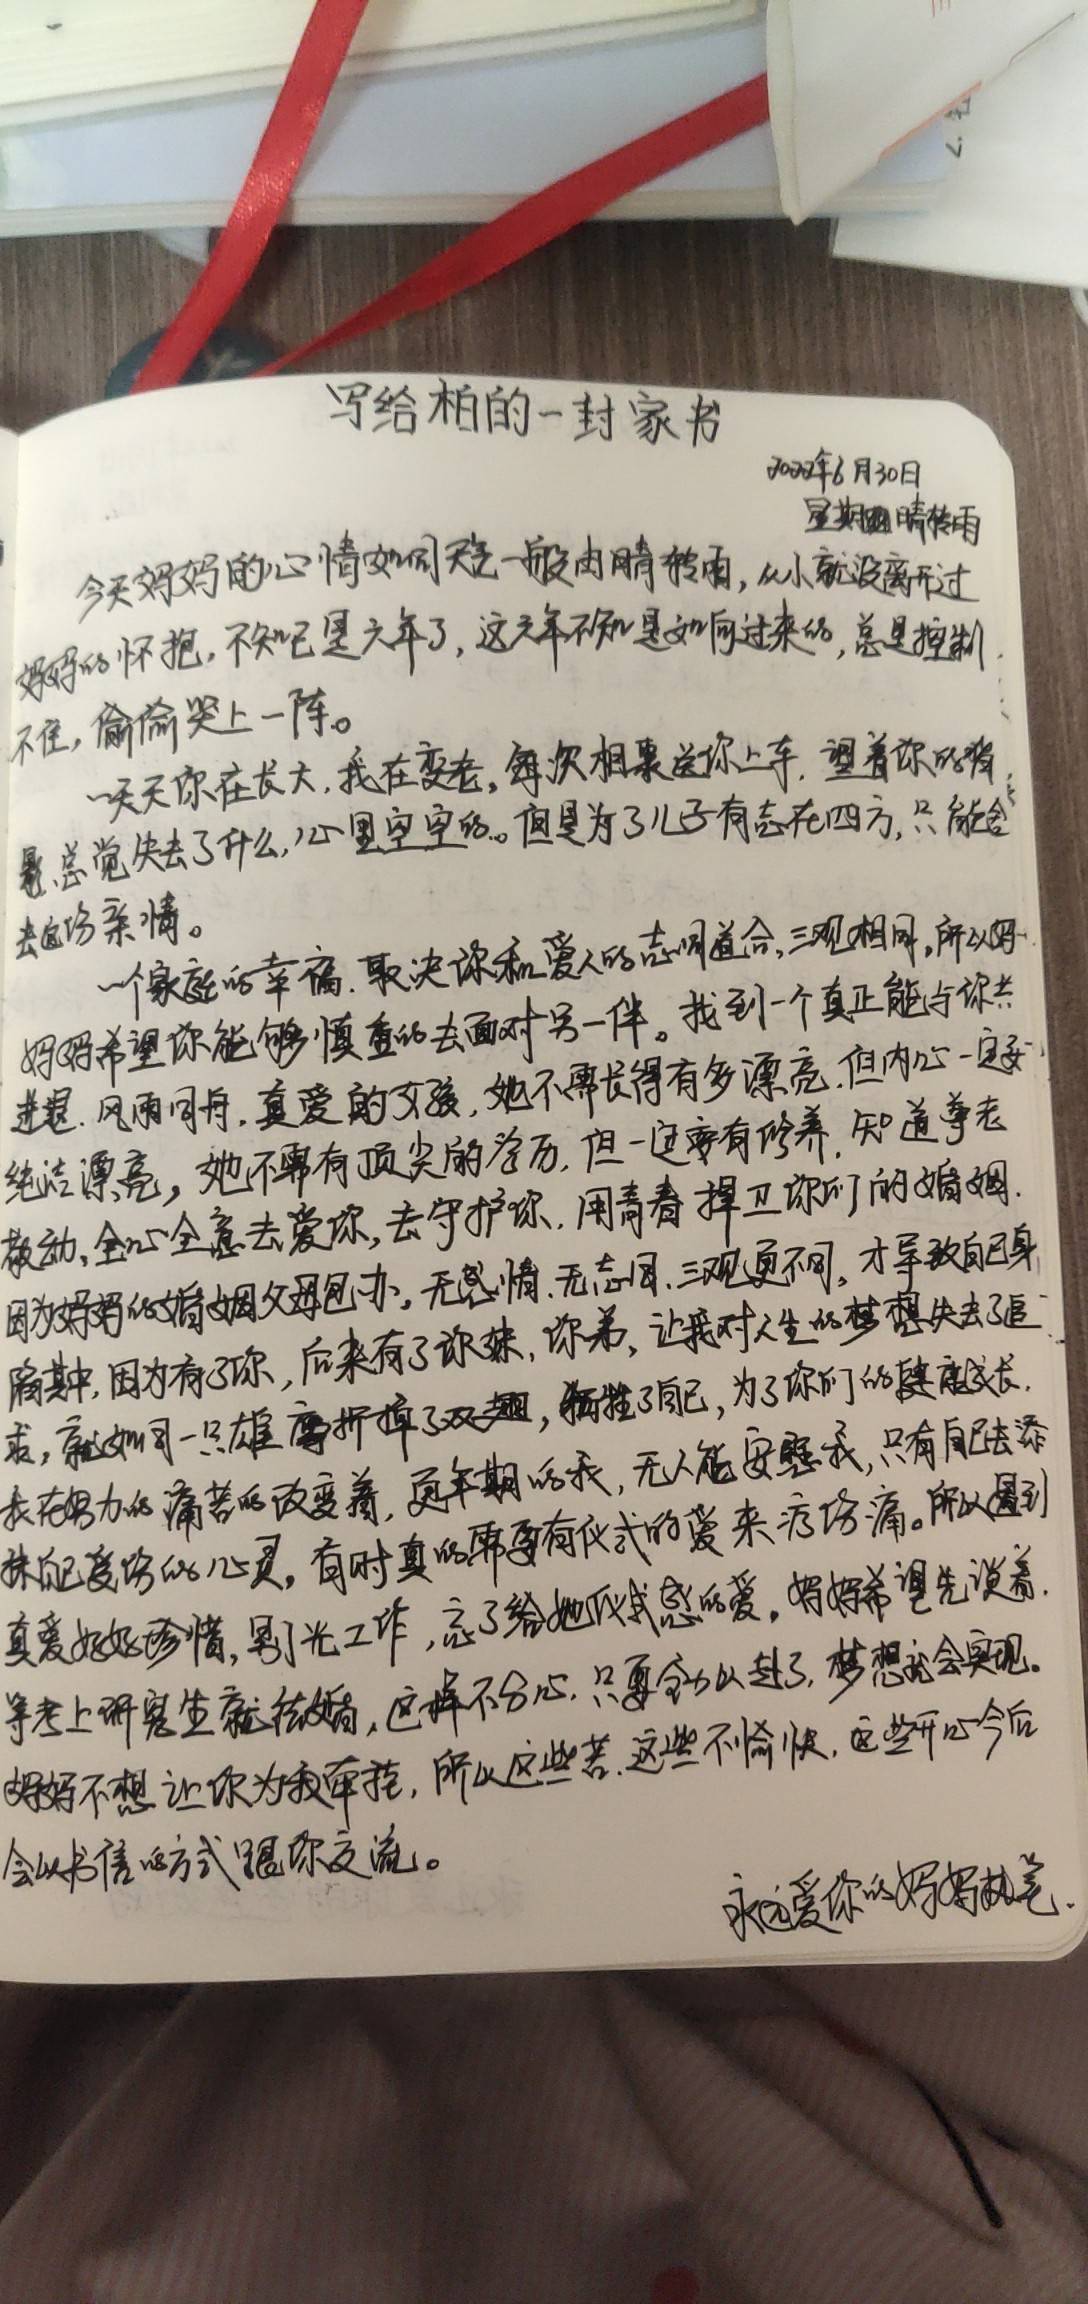 写给柏的一封家书
2022年6月30日
星期四晴转雨
今天妈妈的心情如同天气一般由晴转雨,从小就没离开过
妈妈的怀抱,不知已是六年了,这六年不知是如何过来的,总是控制
不住,偷偷哭上一阵。
一天天你在长大,我在变老,每次相聚送你上车,望着你的背
影,总觉失去了什么,心里空空的。但是为了儿子有志在四方,只能舍
去这场亲情。
一个家庭的幸福,取决你和爱人的志同道合,三观相同,所以妈
妈妈希望你能够慎重的去面对另一伴。找到一个真正能与你共
进退,风雨同舟,真爱的女孩,她不需长得有多漂亮,但内心一定要
纯洁漂亮,她不需有顶尖的学历,但一定要有修养,知道尊老
敬幼,全心全意去爱你,去守护你,用青春捍卫你们的婚姻.
因为妈妈的婚姻父母包办,无感情、无志同、三观更不同,才导致自己身
陷其中,因为有了你,后来有了你妹,你弟,让我对人生的梦想失去了追
求,就如同一只雄鹰折掉了双翅,牺牲了自己,为了你们的健康成长,
我在努力的痛苦的改变着,更年期的我,无人能安慰我,只有自己去添
抹自己受伤的心灵,有时真的需要有仪式的爱来疗伤痛。所以遇到
真爱好好珍惜,别光工作,忘了给她仪式感的爱。妈妈希望先谈着,
等考上研究生就结婚,这样不分心,只要全力以赴了,梦想就会实现。
妈妈不想让你为我牵挂,所以这些苦、这些不愉快,这些开心今后
会以书信的方式跟你交流。
永远爱你的妈妈执笔.